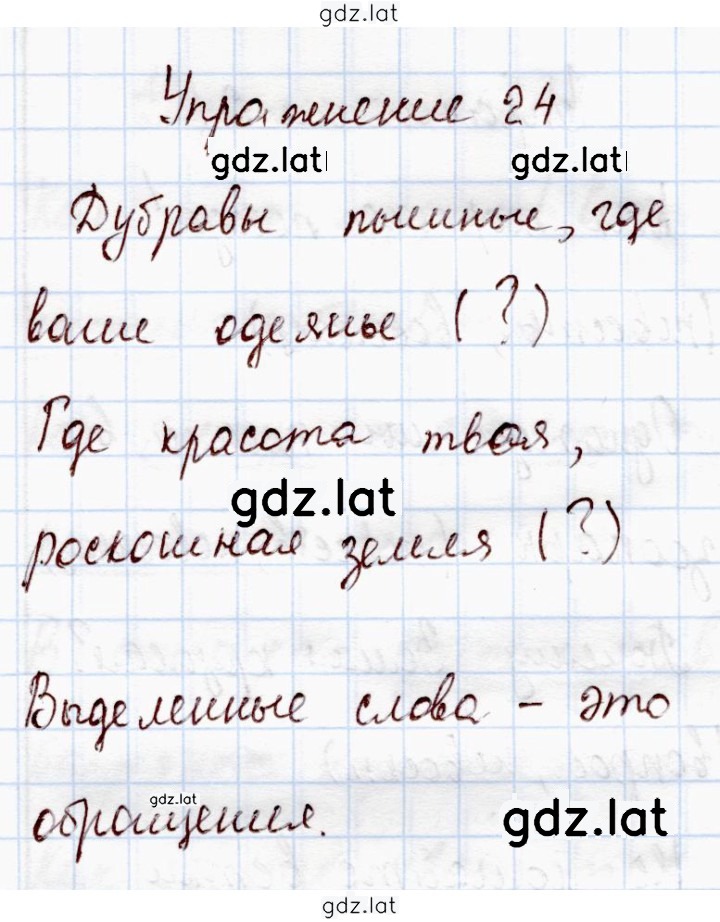 gdz.lat
Упражнение 24
gdz.lat gdz.lat
Дубравы пышные, где
ваше одеянье (?)
Где красота твоя,
gdz.lat
роскошная земля (?)
Выделенные слова - это
gdz.lat
обращения.
gdz.lat
gdz.lat